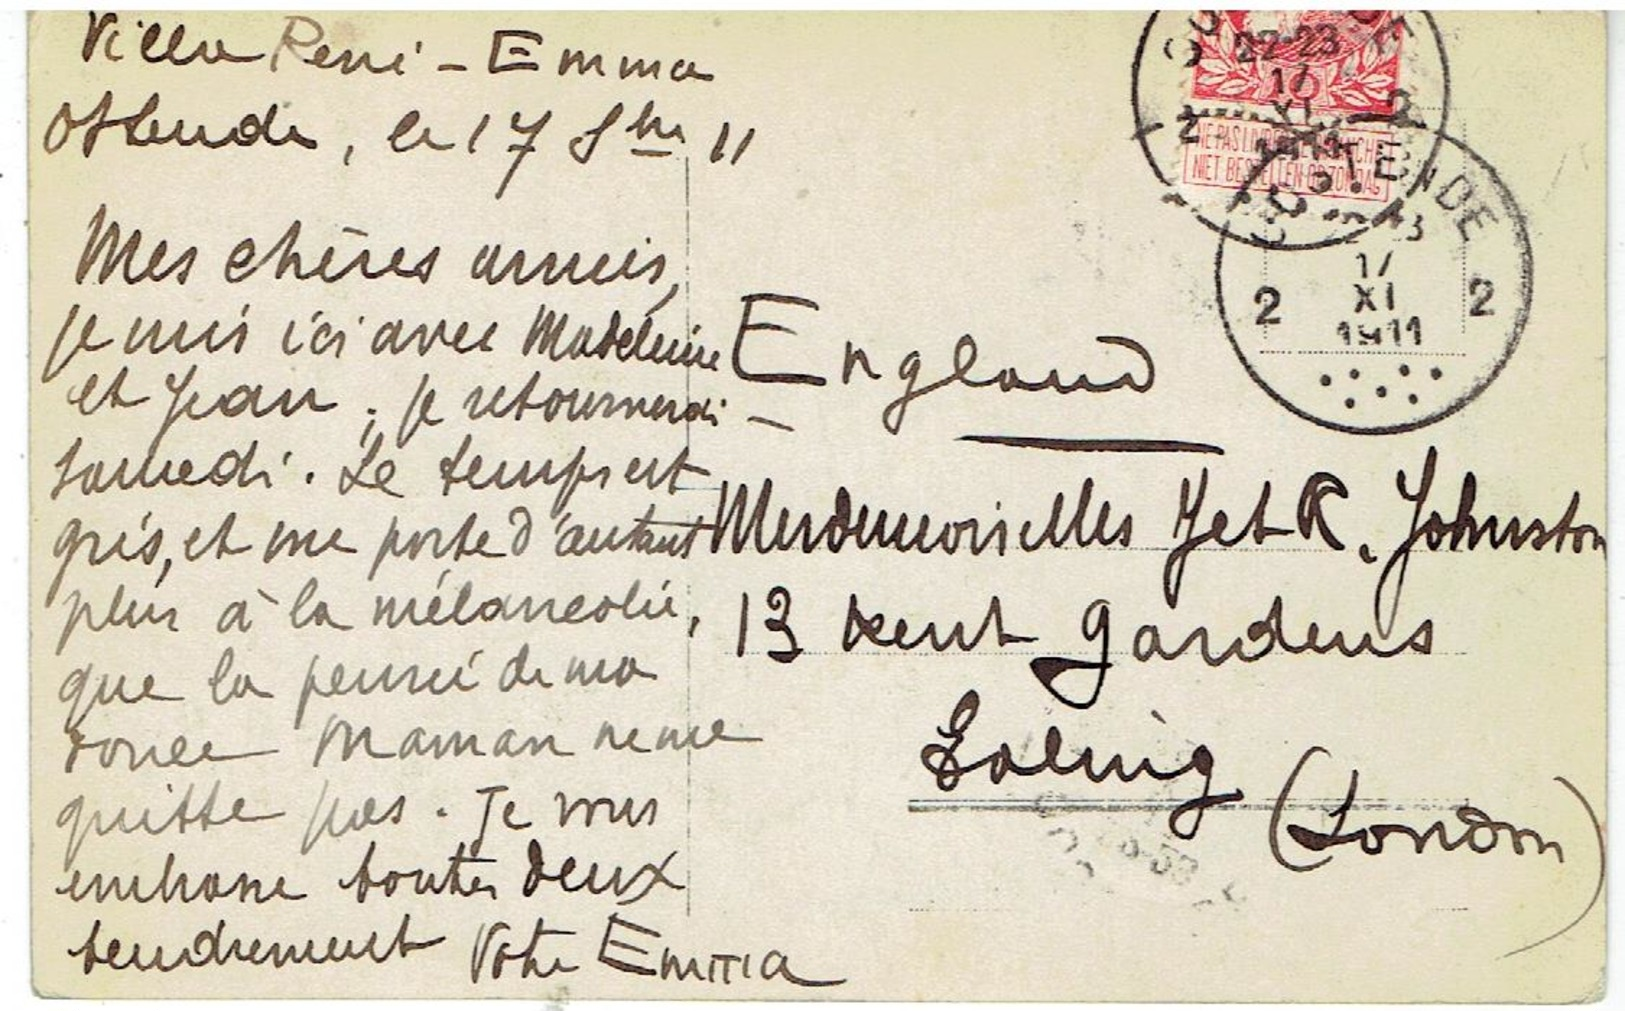 Villa René-Emma
Ostende, le 17 9bre 11
Mes chères amies,
je suis ici avec Madeleine
et Jean ; je retournerai
samedi. Le temps est
gris, et me porte d'autant
plus à la mélancolie,
que la pensée de ma
Maman ne me
quitte pas. Je vous
embrasse toutes deux
tendrement Votre Emma
22-23
17
XI
NE PAS LIVRER LE DIMANCHE
NIET BESTELLEN OP ZONDAG
OSTENDE
2 2
17
XI
1911
England
Mesdemoiselles J et R. Johnston
13 Kent Gardens
Ealing
(London)